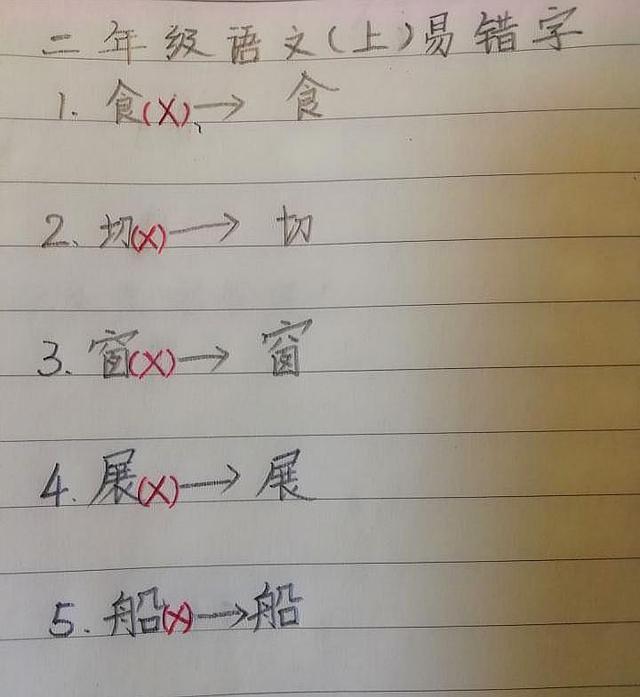 二年级语文(上)易错字
1. 食(X)→ 食
2、切(X)→ 切
3、窗(X)→ 窗
4. 展(X)→ 展
5. 船(X)→船